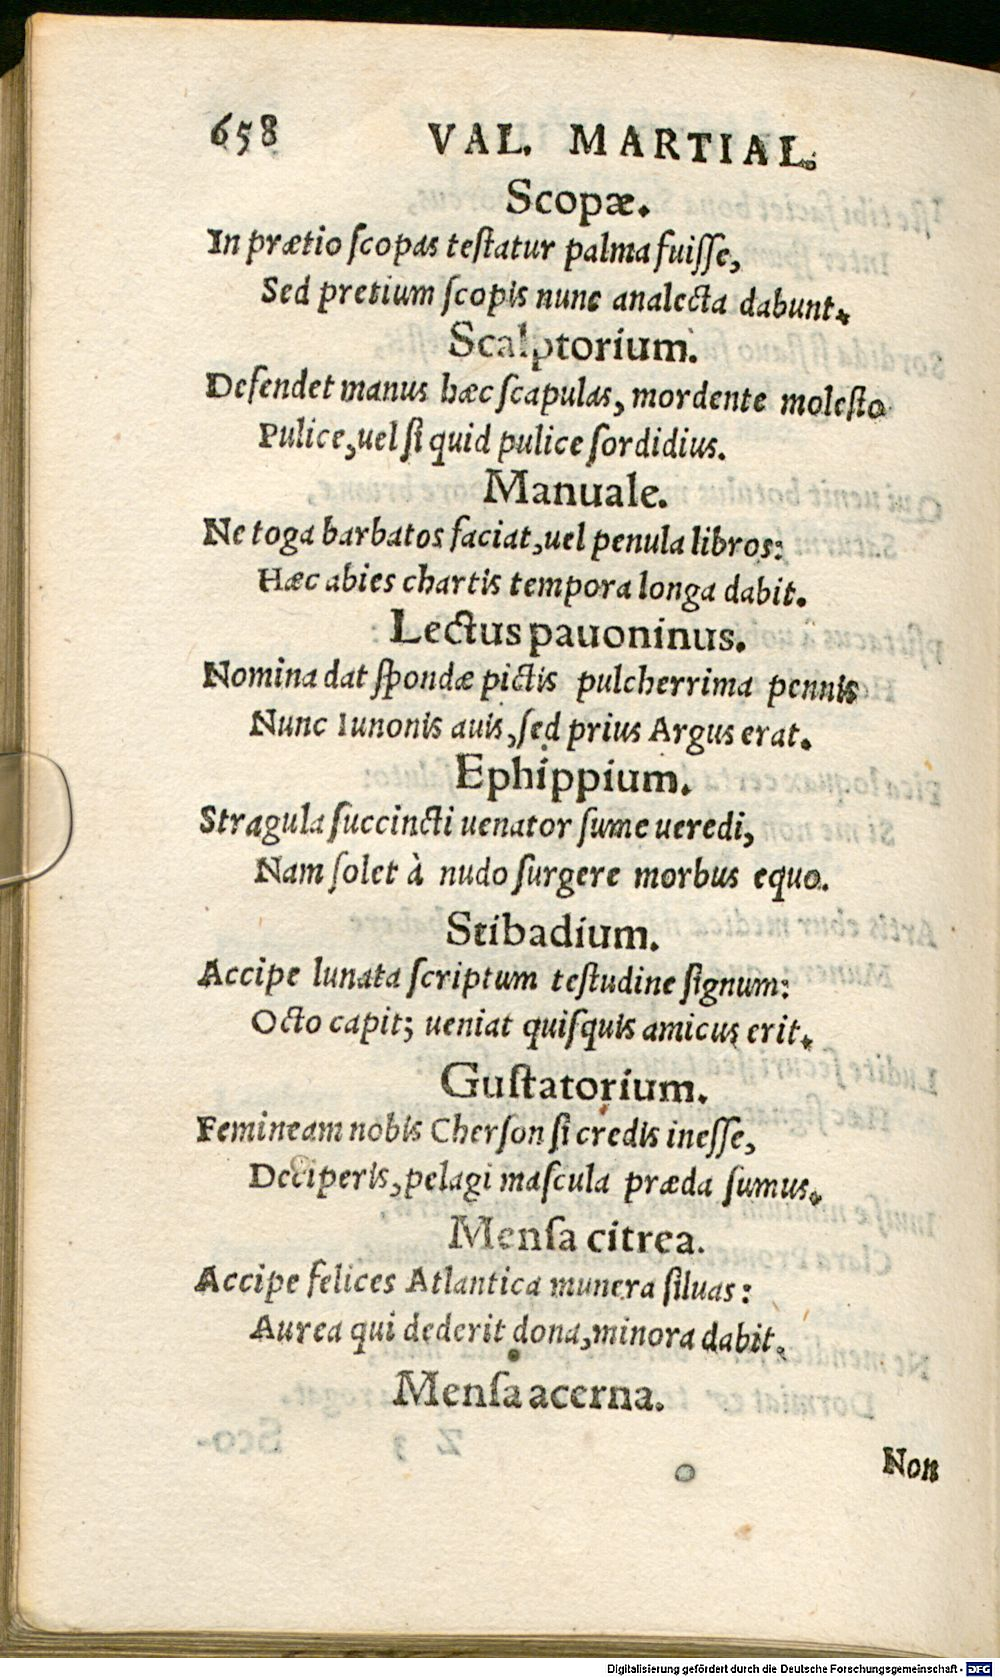 658 VAL. MARTIAL.
Scopæ.
In prætio ſcopas teſtatur palma fuiſſe,
Sed pretium ſcopis nunc analecta dabunt.
Scalptorium.
Defendet manus hæc ſcapulas, mordente moleſto
Pulice, uel ſi quid pulice ſordidius.
Manuale.
Ne toga barbatos faciat, uel penula libros:
Hæc abies chartis tempora longa dabit.
Lectus pauoninus.
Nomina dat ſpondæ pictis pulcherrima pennis
Nunc Iunonis auis, ſed prius Argus erat.
Ephippium.
Stragula ſuccincti uenator ſume ueredi,
Nam ſolet à nudo ſurgere morbus equo.
Stibadium.
Accipe lunata ſcriptum teſtudine ſignum:
Octo capit; ueniat quiſquis amicus erit.
Guſtatorium.
Femineam nobis Cherſon ſi credis ineſſe,
Deciperis, pelagi maſcula præda ſumus.
Menſa citrea.
Accipe felices Atlantica munera ſiluas:
Aurea qui dederit dona, minora dabit.
Menſa acerna.
Non
Digitalisierung gefördert durch die Deutsche Forschungsgemeinschaft - DFG